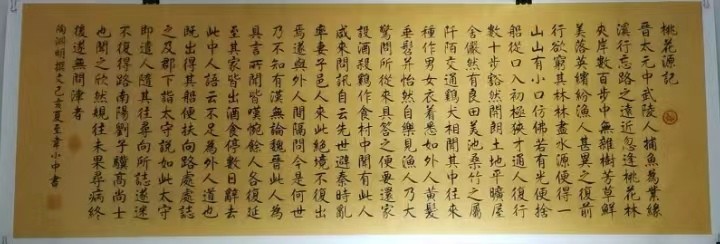 桃花源記
晉太元中武陵人捕魚爲業緣
溪行忘路之遠近忽逢桃花林
夾岸數百步中無雜樹芳草鮮
美落英繽紛漁人甚異之復前
行欲窮其林林盡水源便得一
山山有小口仿佛若有光便捨
船從口入初極狹才通人復行
數十步豁然開朗土地平曠屋
舍儼然有良田美池桑竹之屬
阡陌交通鷄犬相聞其中往來
種作男女衣着悉如外人黄髮
垂髫并怡然自樂見漁人乃大
驚問所從來具答之便要還家
設酒殺鷄作食村中聞有此人
咸來問訊自云先世避秦時亂
率妻子邑人來此絶境不復出
焉遂與外人間隔問今是何世
乃不知有漢無論魏晉此人爲
具言所聞皆嘆惋餘人各復延
至其家皆出酒食停數日辭去
此中人語云不足爲外人道也
既出得其船便扶向路處處誌
之及郡下詣太守説如此太守
即遣人隨其往尋向所誌遂迷
不復得路南陽劉子驥高尚士
也聞之欣然規往未果尋病終
後遂無問津者
陶淵明撰文己亥夏至韋小中書